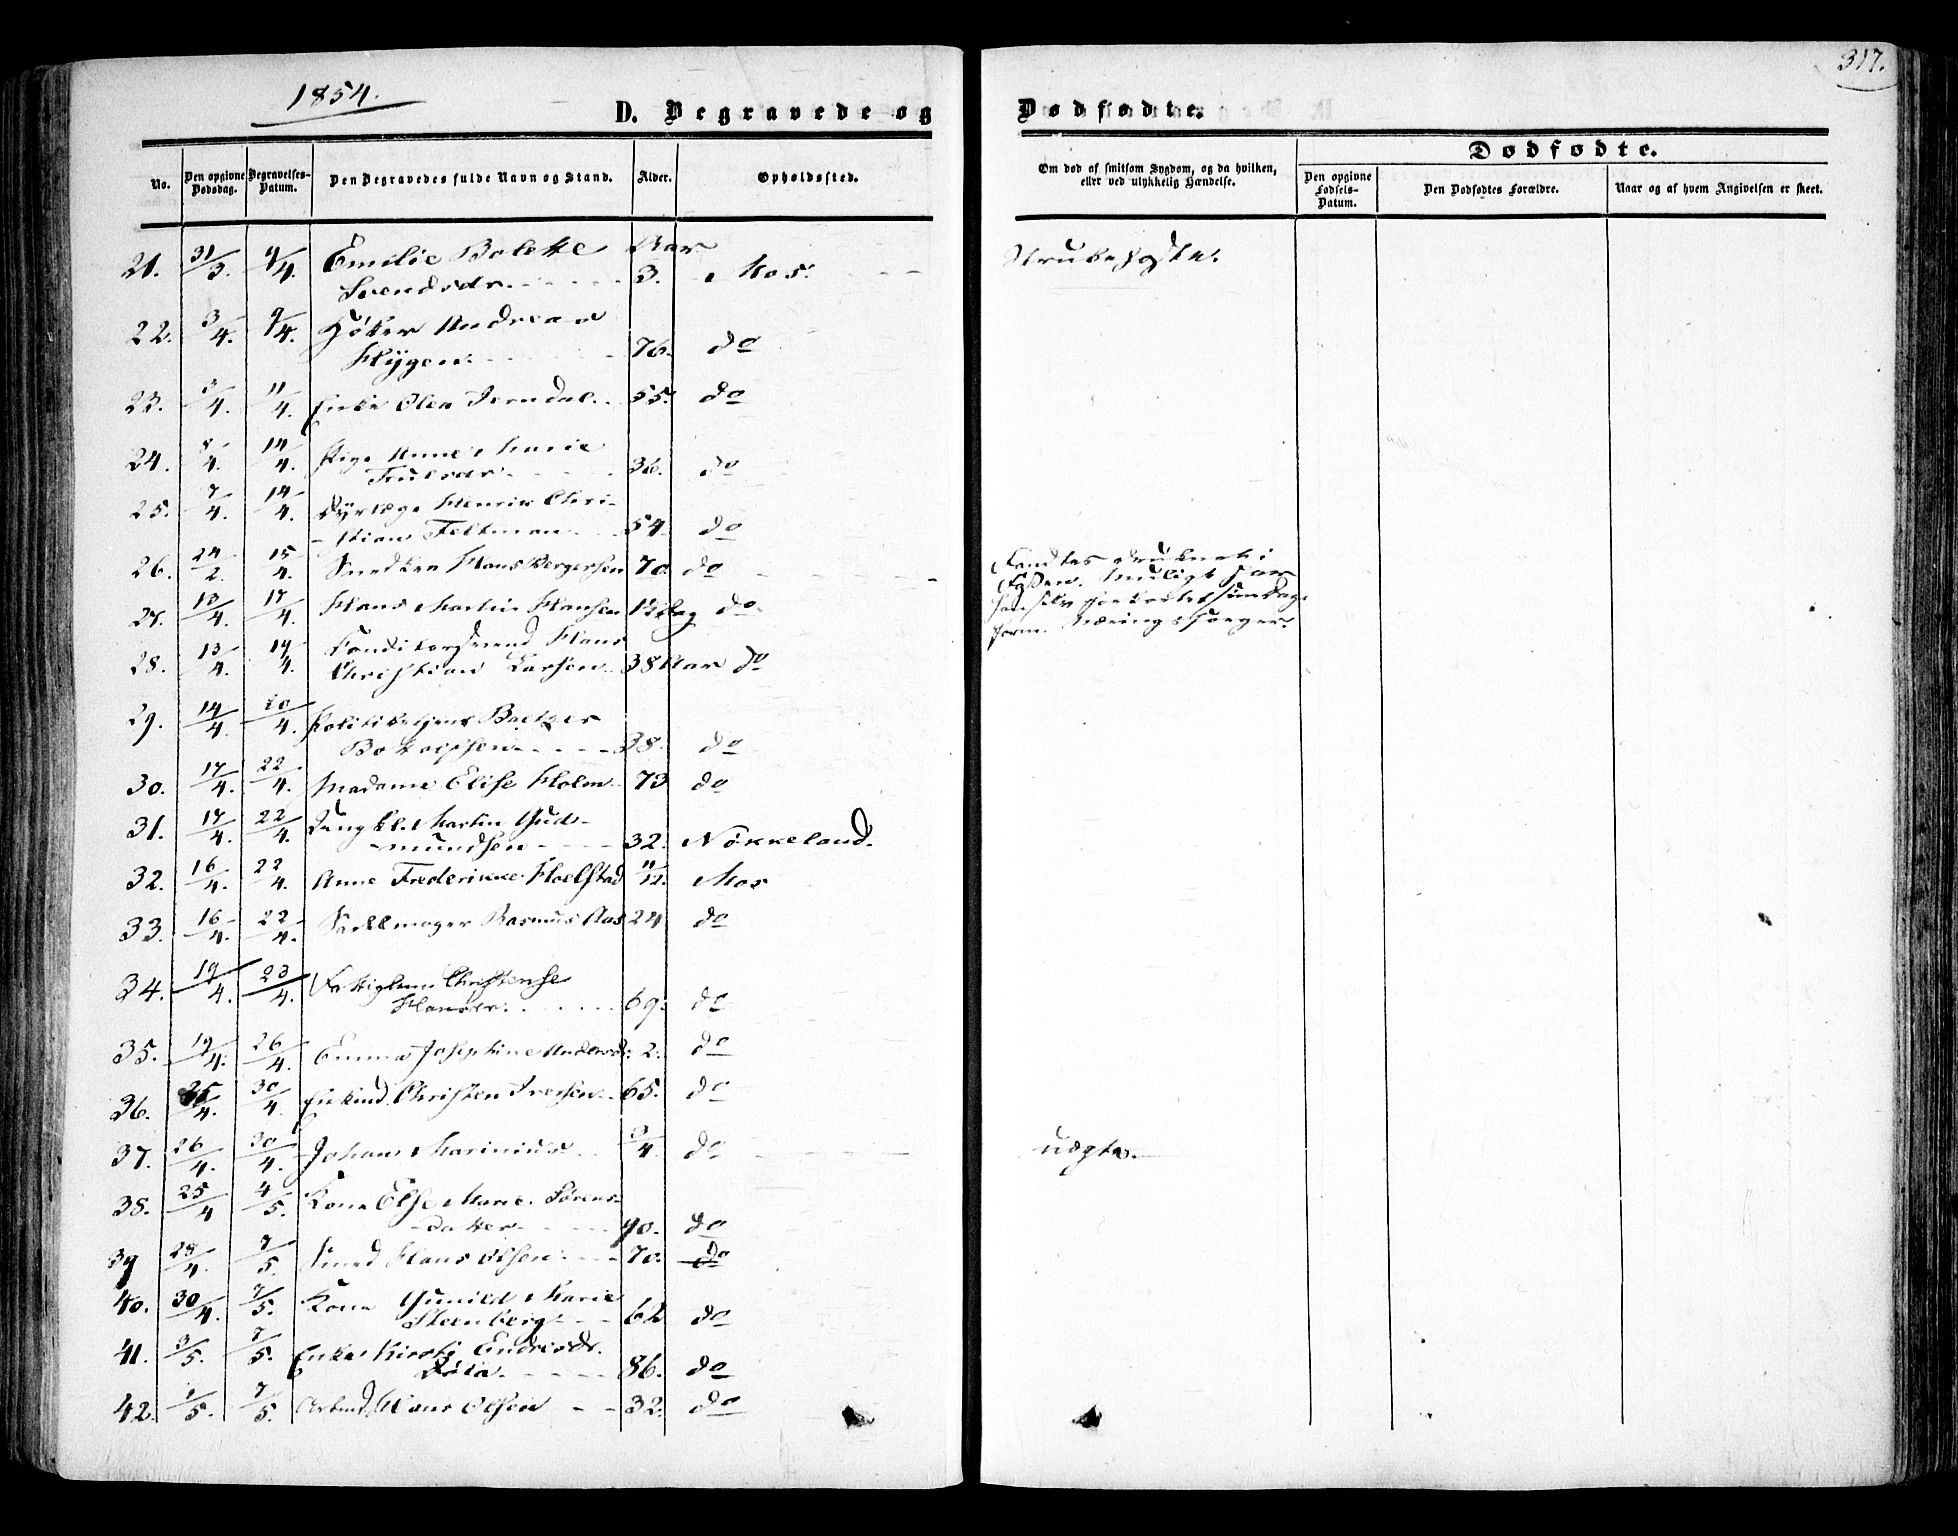 1854.
317.
D. Begravede og Dødfødte.
No.
Den opgivne Dødsdag.
Begravelses-Datum.
Den Begravedes fulde Navn og Stand.
Alder.
Opholdssted.
Om død af smitsom Sygdom, og da hvilken, eller ved ulykkelig Hændelse.
Dødfødte.
Den opgivne Fødsels-Datum.
Den Dødfødtes Forældre.
Naar og af hvem Angivelsen er skeet.
21. 31/3. 4/4. Emilie Bolette Aar
Svendsdr. 3. Mos. Strubehoste.
22. 3/4. 9/4. Høker Andreas
Flygen. 76. do
23. 3/4. 11/4. Enke Olea Jerndal. 55. do
24. 8/4. 14/4. Pige Anne Marie
Truesdr. 36. do
25. 7/4. 14/4. Dyrlæge Henrik Chri-
stian Feltman 54. do
26. 24/2. 15/4. Snedker Hans Bergersen 70. do Fandtes druknet i
Fossen. Muligt har
han selv forkortet sine Dage
form. Næringssorger.
27. 13/4. 17/4. Hans Martin Hansen 1½ Dag do
28. 13/4. 19/4. Conditorsvend Hans
Christian Larsen 38 Aar do
29. 14/4. 20/4. Politibetjent Baltzer
Botolfsen 38. do
30. 17/4. 22/4. Madame Elise Holm 73 do
31. 17/4. 22/4. Ungkl. Martin Gud-
mundsen 32. Nøkkeland.
32. 16/4. 22/4. Anne Frederikke Hoelstad 11/12. Mos
33. 16/4. 22/4. Sadelmager Rasmus Aas 24 do
34. 19/4. 23/4. Fattiglem Christense
Hansdr. 69. do
35. 19/4. 26/4. Emma Josephine Andersd. 2. do
36. 25/4. 30/4. Enkmd. Christen Iversen 65. do
37. 26/4. 30/4. Johan Marinius 3/4 do uægte.
38. 25/4 4/5. Kone Else Marie Sørens-
datter 40. do
39 29/4. 7/5. Smed Hans Olsen 70. do
40. 30/4. 7/5. Kone Gunild Marie
Steenberg 62 do
41. 3/5. 7/5. Enke Kirsti Endresdr.
86. do
42. 1/5. 7/5. Arbmd. Hans Olsen 32. do